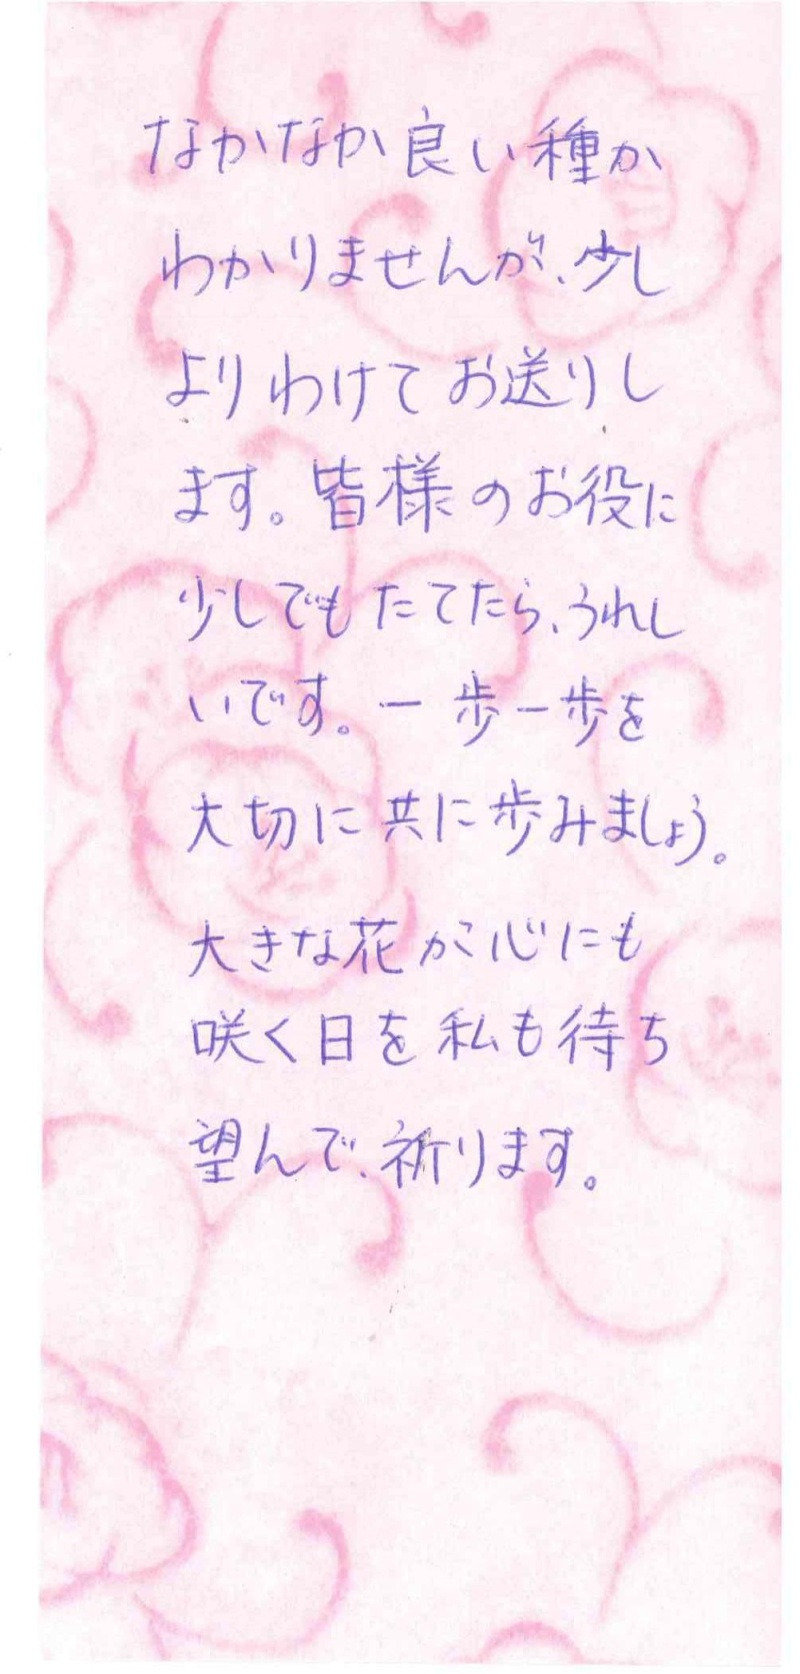 なかなか良い種か
わかりませんが、少し
よりわけてお送りし
ます。皆様のお役に
少しでもたてたら、うれし
いです。一歩一歩を
大切に共に歩みましょう。
大きな花が心にも
咲く日を私も待ち
望んで、祈ります。